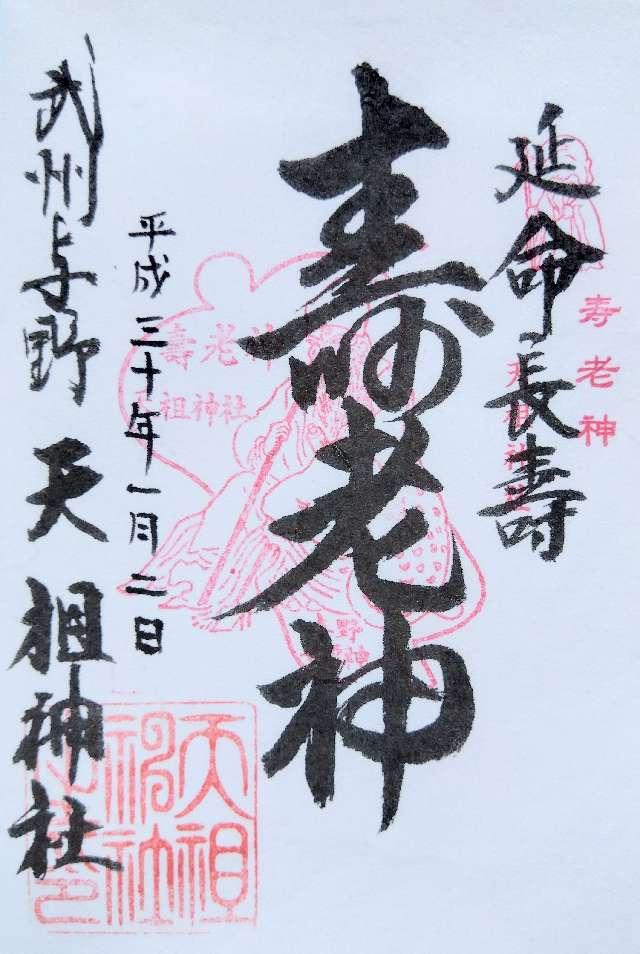 延命長壽
寿老神
天祖神社
壽老神
壽老神
祖神社
与野
七福神
平成三十年一月二日
武州与野 天祖神社
天祖
神社